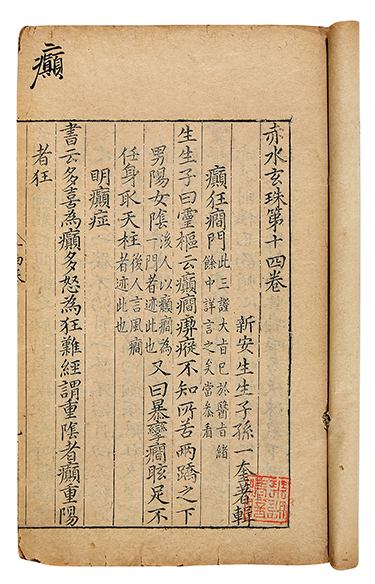 癲
赤水玄珠第十四卷
新安生生子孫一奎著輯
癲狂癇門 此三證大旨已於醫旨緒
餘中詳言之矣當叅看
生生子曰靈樞云癲癇瘈瘲不知所苦兩蹻之下
男陽女陰 後人以癲癇為
一門者迹此也 又曰暴攣癇眩足不
任身取天柱 後人言風癇
者迹此也
明癲症
書云多喜為癲多怒為狂難經謂重陰者癲重陽
者狂